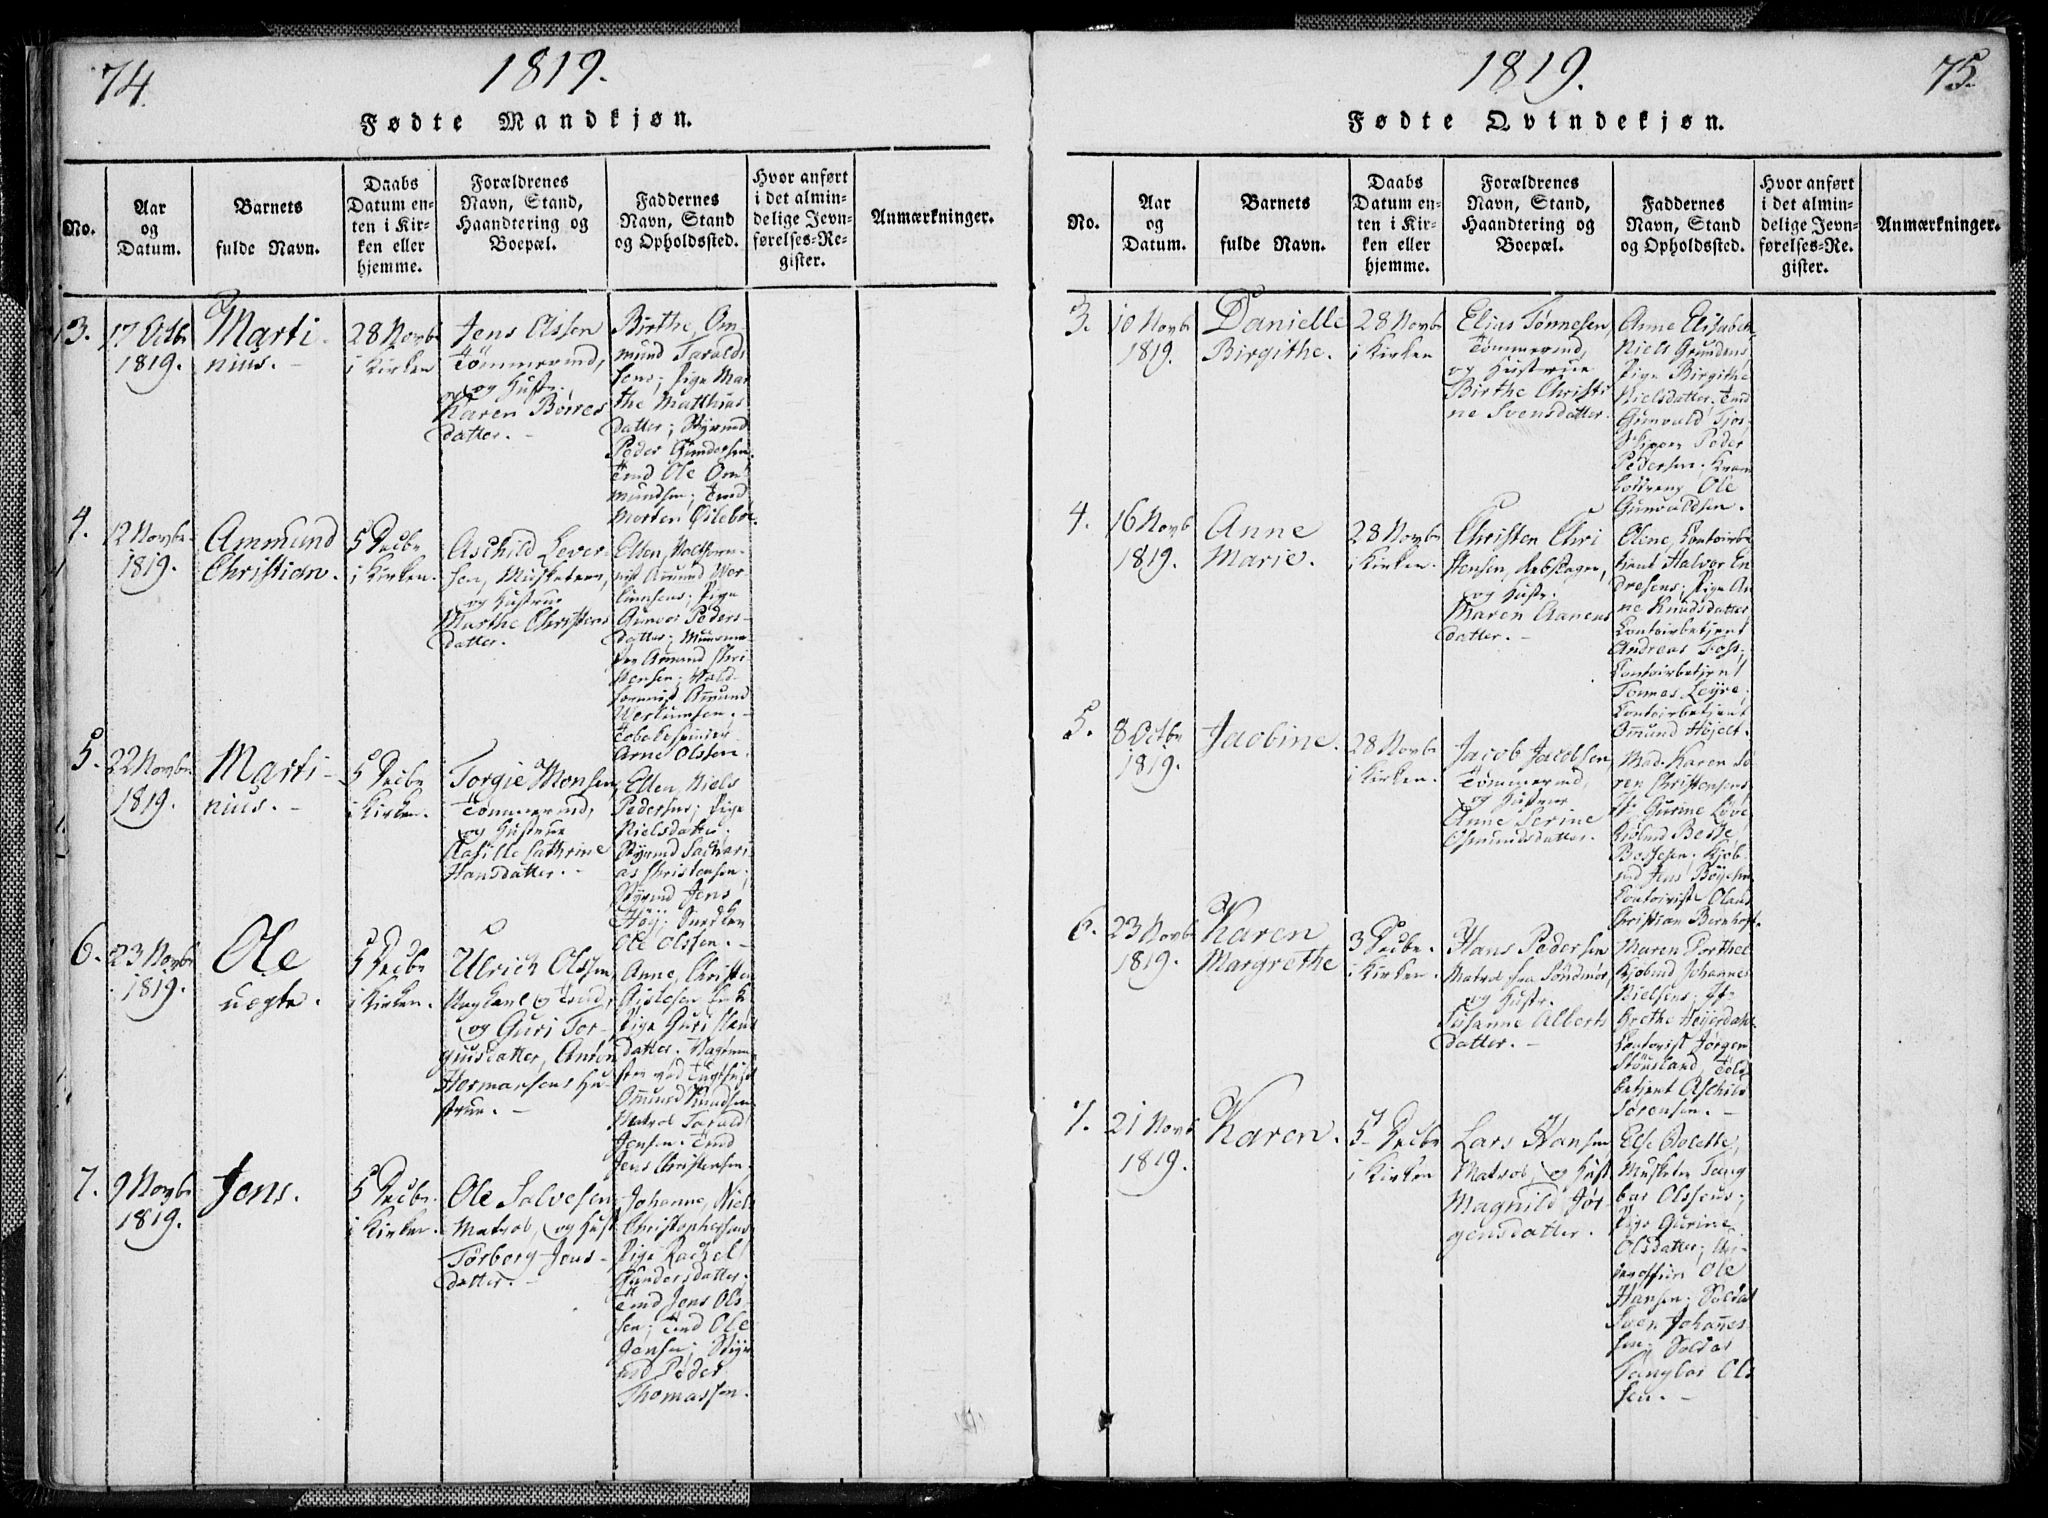 74.
1819.
Fødte Mandkjøn.
No.
Aar
og
Datum.
Barnets
fulde Navn.
Daabs
Datum en-
ten i Kir-
ken eller
hjemme.
Forældrenes
Navn, Stand,
Haandtering og
Boepæl.
Faddernes
Navn, Stand
og Opholdssted.
Hvor anført
i det almin-
delige Jevn-
førelses-Re-
gister.
Anmærkninger.
3.
17 Octbr
1819.
Marti-
nius.
28 Novbr
i Kirken
Jens Olssen
Tømmermd,
og Hustr.
Karen Børres
datter.
Birthe, Om-
mund Tarald
sens; Pige Mar
the Matthias
datter; Styrmd
Peder Gundersen.
Tmd Ole Om
mundsen; Tmd
Morten Øilebo.
4.
12 Novbr
1819.
Ammund
Christian.
5 Decbr
i Kirken.
Aschild Sever-
sen, Musketeer,
og Hustrue
Marthe Christens
datter.
Ellen,
Amund
Pige
Gunvor Peders-
datter;
Amund Chri
stensen;
Amund
Arne Olssen.
5.
22 Novbr.
1819.
Marti-
nius.
5 Decbr
i Kirken.
Torgie Monsen,
Tømmermd,
og Hustrue
Cathrine
Hansdatter.
Ellen, Niels
Pedersens; Pige
Nielsdatter.
Styrmd Sachari-
as Christensen;
Styrmd Jens
Høy;
Ole Olssen.
6.
23 Novbr
1819.
Ole
uegte.
5 Decbr
i Kirken.
Ulrich Olssen
Ungkarl Tmd,
og Guri Ter-
guisdatter, Anton
Hermansens Hu-
strue.
Anne, Christen
Pige Guri
datter.
Ommund Knudsen
Matros Tarald
Jensen. Tmd
Jens Christensen.
7.
9 Novbr
1819.
Jens.
5 Decbr.
i Kirken.
Ole Salvesen
Matros, og Hust
Torborg Jens-
datter.
Johanne, Niels
Christophersens
Pige Rachel
Gundersdatter;
Tmd Jens Ols-
sen; Tmd Ole
Jensen; Styr
md Peder
Thomassen.
1819.
75.
Fødte Qvindekjøn.
No.
Aar
og
Datum.
Barnets
fulde Navn.
Daabs
Datum en-
ten i Kir-
ken eller
hjemme.
Forældrenes
Navn, Stand,
Haandtering og
Boepæl.
Faddernes
Navn, Stand
og Opholdssted.
Hvor anført
i det almin-
delige Jevn-
førelses-Re-
gister.
Anmærkninger.
3.
10 Novbr
1819.
Danielle
Birgithe.
28 Novbr
i Kirken
Elias Tønnesen,
Tømmermd,
og Hustrue
Birthe Christi
ne Svensdatter.
Anne Elisabeth
Niels
Pige Birgithe
Nielsdatter. Tmd
Gunvald
Peder
Pedersen.
Ole
Gunvaldsen.
4.
16 Novb
1819.
Anne
Marie.
28 Novbr
i Kirken.
Christen Chri
stensen, Rebslager,
og Hustr.
Maren Aanens
datter.
Olene, Contoirbe
tjent Halvor En
dresens; Pige An
ne Knudsdatter
Contoirbetjent
Andreas Foss;
Contoirbetjent
Tønnes
Contoirbetjent
Ommund
5.
8 Octbr
1819.
Jacobine.
28 Novbr
i Kirken.
Jacob Jacobsen,
Tømmermd,
og Hustrue
Anne Serine
Osmundsdatter.
Mad. Karen Sø
ren Christensens,
Jf. Gurine
Jens
Christian
6.
23 Novbr
1819.
Karen
Margrethe
3 Decbr.
i Kirken.
Hans Pedersen
Matros fra Søndmør,
og Hustr.
Susanne Alberts
datter.
Maren Dorthe
Kjøbmd Johannes
Nielsens; Jf.
Grethe Heyerdahl.
Contorist Jørgen
Told
betjent Aschild
Sørensen.
7.
21 Novb
1819.
Karen.
5 Decbr
i Kirken
Lars Hansen
Matros, og Hust
Magnild Jør
gensdatter.
Else Bolette,
Musketeer
Olssens;
Pige Gurine
Olsdatter; Un-
derofficer Ole
Hansen; Soldat
Sven Johannes
sen; Soldat
Ols
sen.